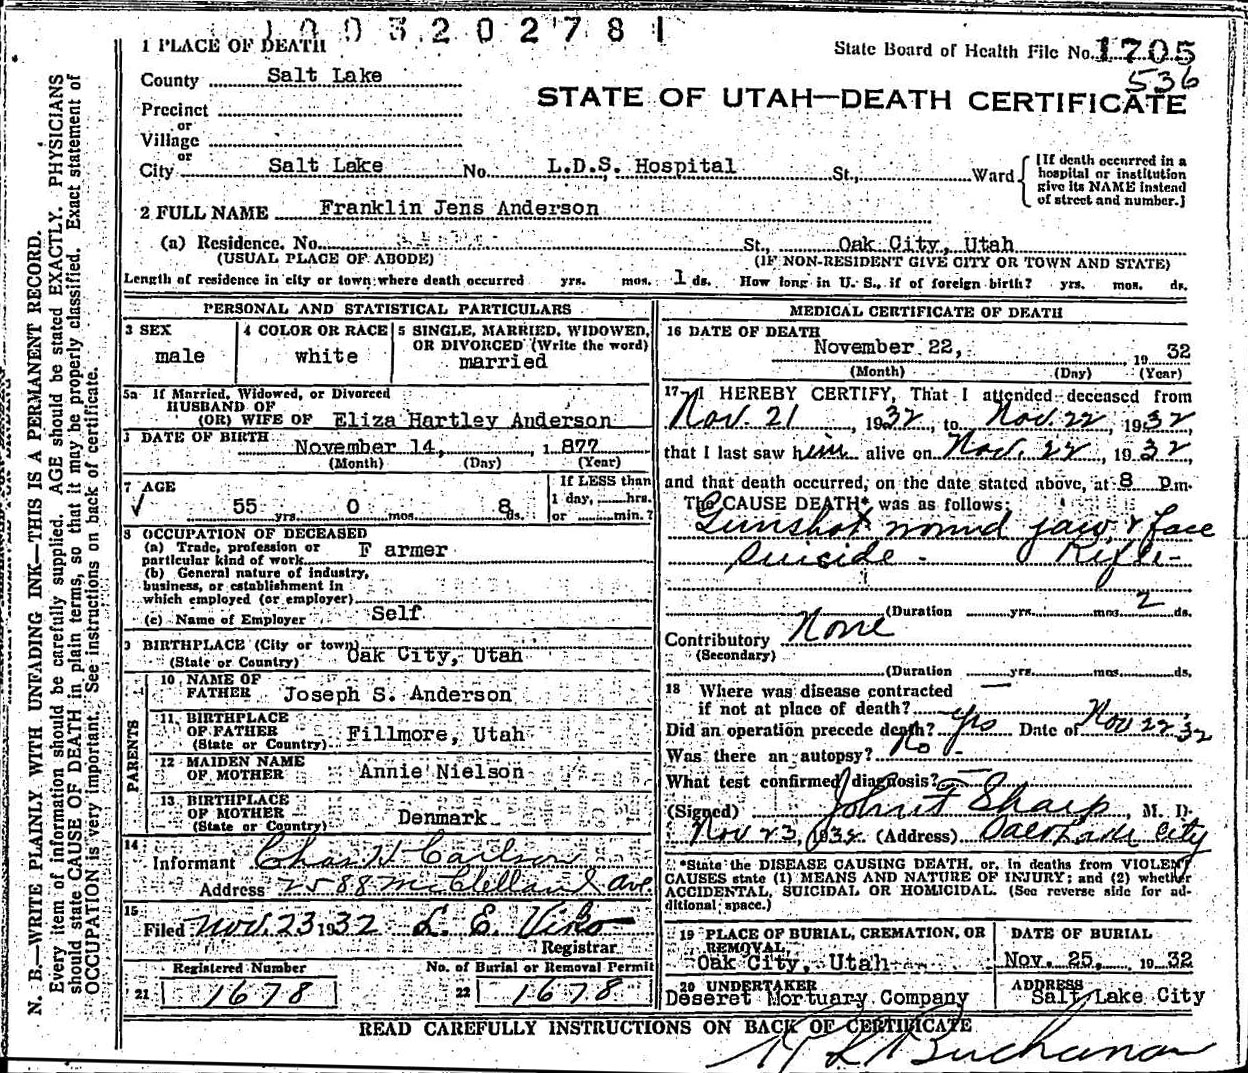 1003202781
1 PLACE OF DEATH
State Board of Health File No. 1705
536
County Salt Lake
STATE OF UTAH—DEATH CERTIFICATE
Precinct
or
Village
or
City Salt Lake No. L.D.S. Hospital St., Ward
[If death occurred in a hospital or institution give its NAME instead of street and number.]
2 FULL NAME Franklin Jens Anderson
(a) Residence. No. St., Oak City, Utah
(USUAL PLACE OF ABODE) (IF NON-RESIDENT GIVE CITY OR TOWN AND STATE)
Length of residence in city or town where death occurred yrs. mos. 1 ds. How long in U. S., if of foreign birth? yrs. mos. ds.
PERSONAL AND STATISTICAL PARTICULARS
3 SEX
male
4 COLOR OR RACE
white
5 SINGLE, MARRIED, WIDOWED,
OR DIVORCED (Write the word)
married
5a If Married, Widowed, or Divorced
HUSBAND OF
(OR) WIFE OF Eliza Hartley Anderson
DATE OF BIRTH
November 14, 1877
(Month) (Day) (Year)
7 AGE
55 yrs. 0 mos. 8 ds.
If LESS than
1 day, hrs.
or min.?
8 OCCUPATION OF DECEASED
(a) Trade, profession or
particular kind of work F armer
(b) General nature of industry,
business, or establishment in
which employed (or employer)
(c) Name of Employer Self
9 BIRTHPLACE (City or town)
(State or Country) Oak City, Utah
PARENTS
10 NAME OF
FATHER Joseph S. Anderson
11 BIRTHPLACE
OF FATHER
(State or Country) Fillmore, Utah
12 MAIDEN NAME
OF MOTHER Annie Nielson
13 BIRTHPLACE
OF MOTHER
(State or Country) Denmark
14
Informant Chas W Carlson
Address 2588 McClelland Ave.
15
Filed Nov. 23 1932 L. E. Viko
Registrar
Registered Number No. of Burial or Removal Permit
21 1678 22 1678
MEDICAL CERTIFICATE OF DEATH
16 DATE OF DEATH
November 22, 1932
(Month) (Day) (Year)
17 I HEREBY CERTIFY, That I attended deceased from
Nov. 21, 1932, to Nov. 22, 1932,
that I last saw him alive on Nov. 22, 1932,
and that death occurred, on the date stated above, at 8 p.m.
The CAUSE DEATH* was as follows:
Gunshot wound jaw & face
suicide - Rifle -
(Duration yrs. mos. 2 ds.
Contributory None
(Secondary)
(Duration yrs. mos. ds.
18 Where was disease contracted
if not at place of death? —
Did an operation precede death? yes Date of Nov 22 '32
Was there an autopsy? No
What test confirmed diagnosis? —
(Signed) John F Sharp, M. D.
Nov 23, 1932 (Address) Salt Lake City
*State the DISEASE CAUSING DEATH, or, in deaths from VIOLENT
CAUSES state (1) MEANS AND NATURE OF INJURY; and (2) whether
ACCIDENTAL, SUICIDAL OR HOMICIDAL. (See reverse side for ad-
ditional space.)
19 PLACE OF BURIAL, CREMATION, OR
REMOVAL
Oak City, Utah
DATE OF BURIAL
Nov. 25, 1932
20 UNDERTAKER
Deseret Mortuary Company
ADDRESS
Salt Lake City
READ CAREFULLY INSTRUCTIONS ON BACK OF CERTIFICATE
Buchanan
N. B.—WRITE PLAINLY WITH UNFADING INK—THIS IS A PERMANENT RECORD.
Every item of information should be carefully supplied. AGE should be stated EXACTLY. PHYSICIANS
should state CAUSE OF DEATH in plain terms, so that it may be properly classified. Exact statement of
OCCUPATION is very important. See instructions on back of certificate.